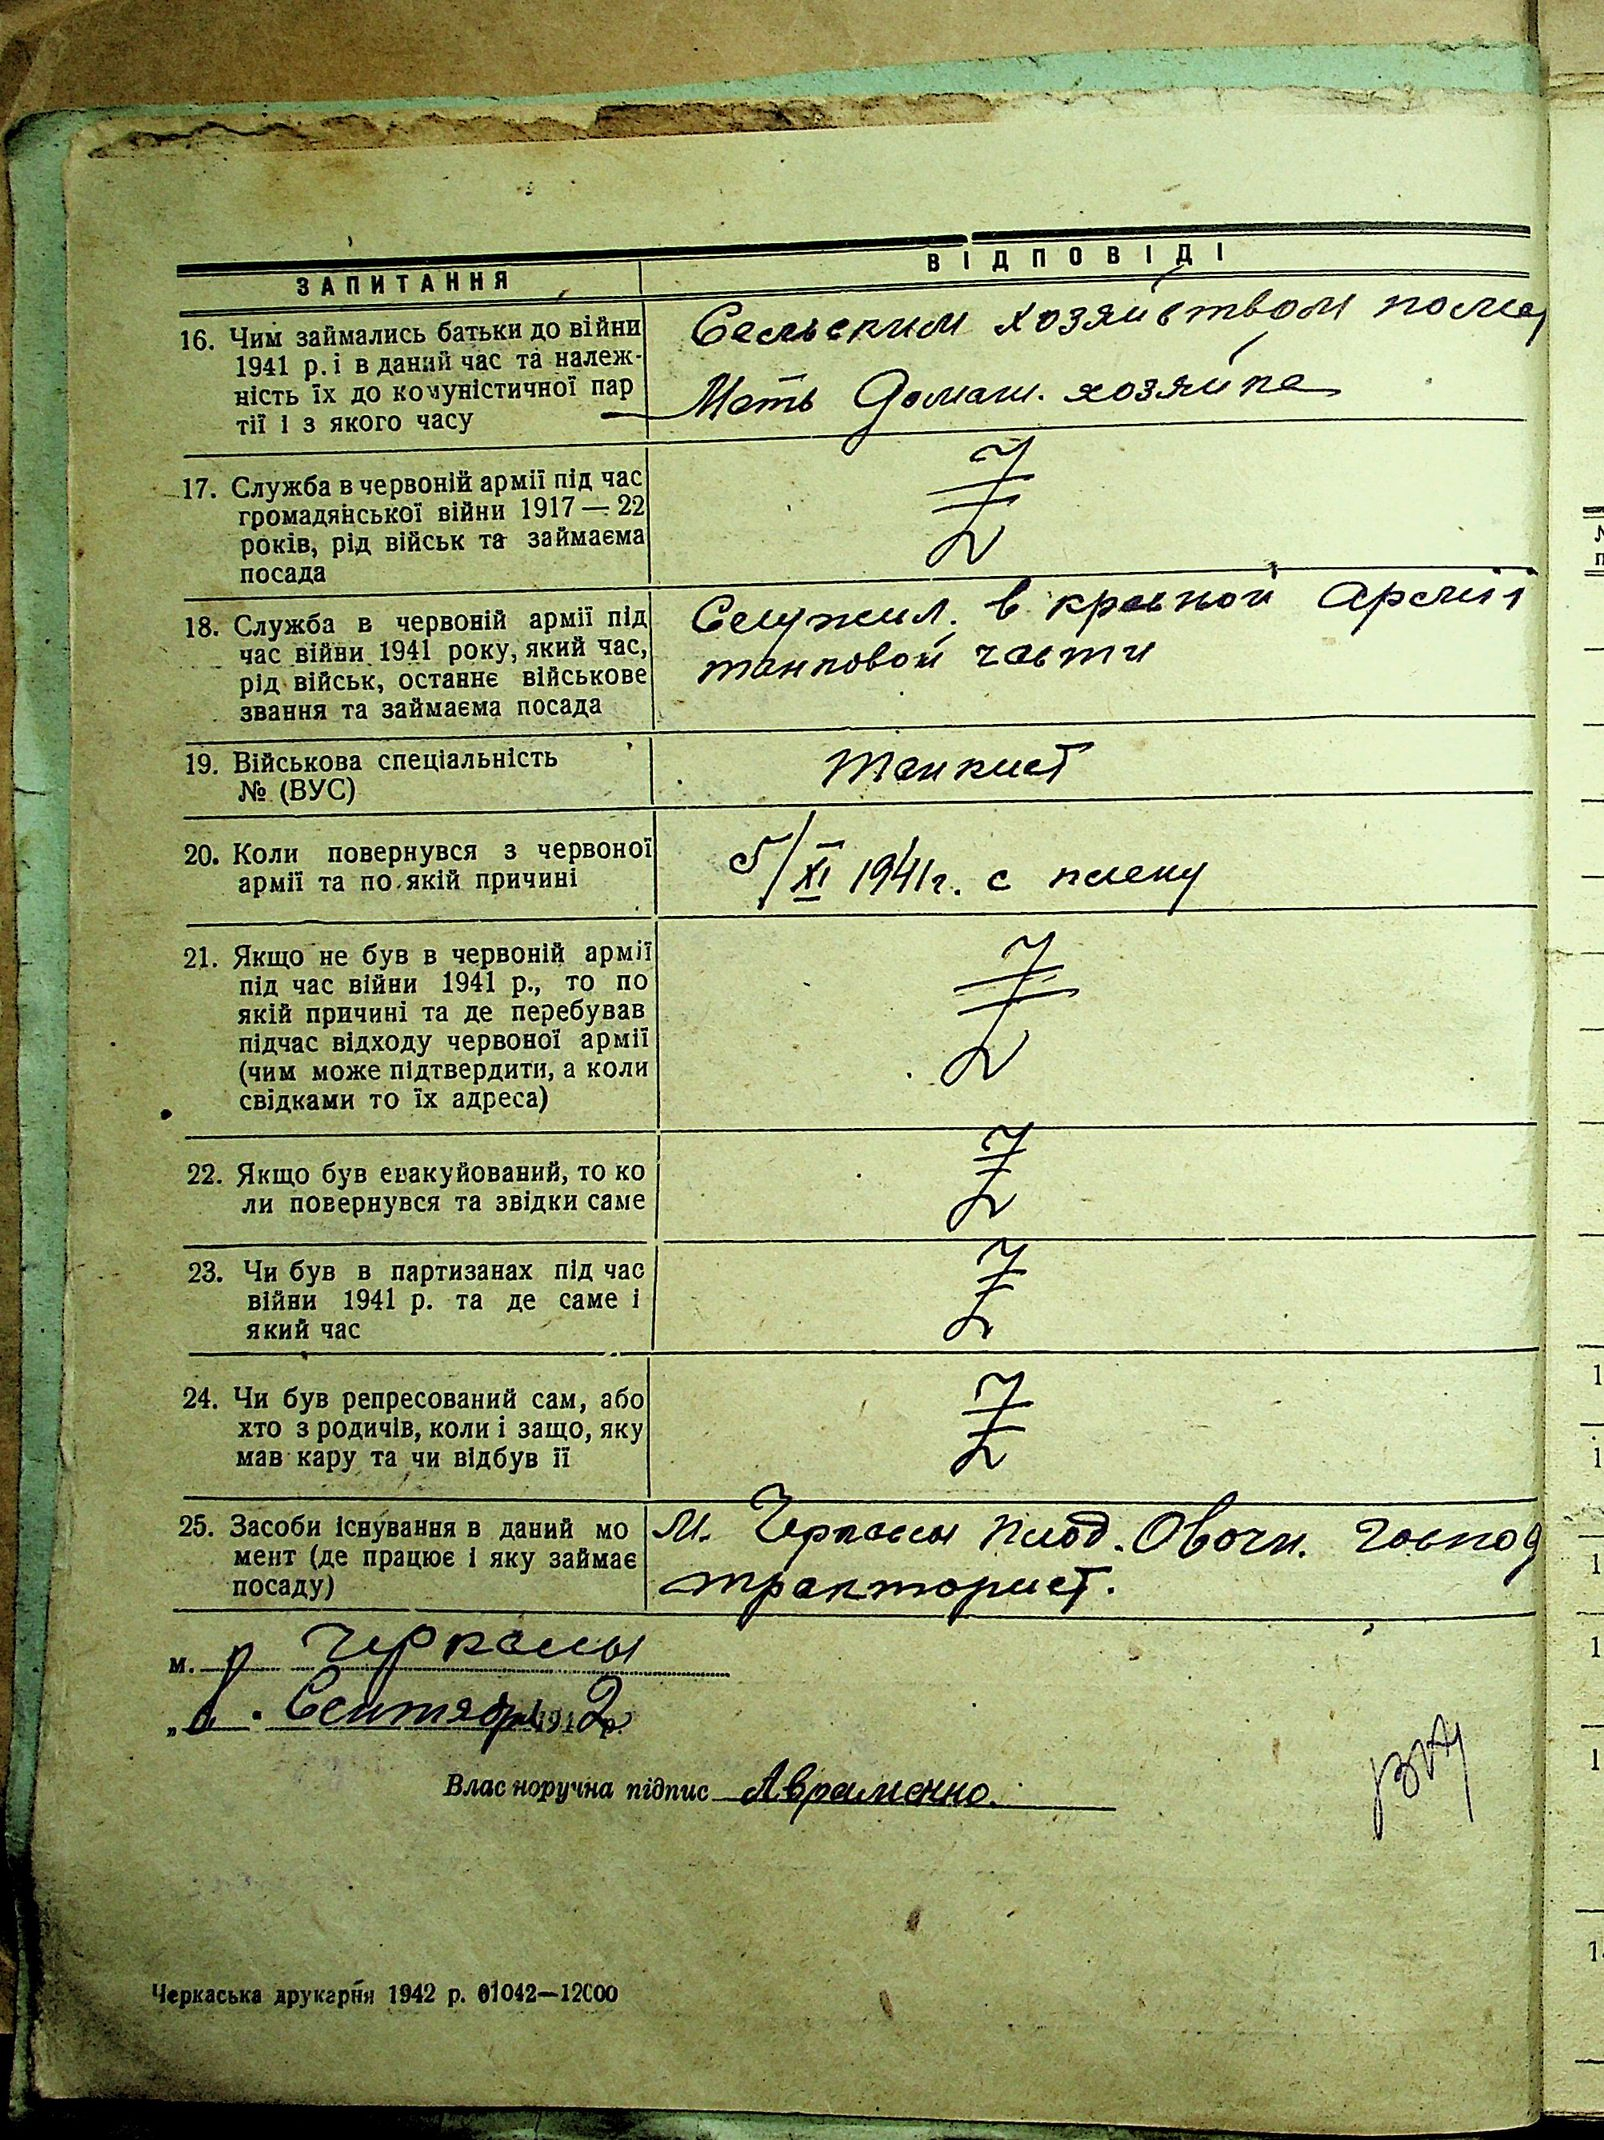 ЗАПИТАННЯ
ВІДПОВІДІ
16. Чим займались батьки до війни
1941 р. і в даний час та належ-
ність їх до комуністичної пар
тії і з якого часу
Сельским хозяйством
Мать домаш. хозяйка
17. Служба в червоній армії під час
громадянської війни 1917 — 22
років, рід військ та займаєма
посада
Z
18. Служба в червоній армії під
час війни 1941 року, який час,
рід військ, останнє військове
звання та займаєма посада
Служил. в красной Армии
танковой части
19. Військова спеціальність
№ (ВУС)
танкист
20. Коли повернувся з червоної
армії та по якій причині
5/XI 1941г. с плену
21. Якщо не був в червоній армії
під час війни 1941 р., то по
якій причині та де перебував
підчас відходу червоної армії
(чим може підтвердити, а коли
свідками то їх адреса)
Z
22. Якщо був евакуйований, то ко
ли повернувся та звідки саме
Z
23. Чи був в партизанах під час
війни 1941 р. та де саме і
який час
Z
24. Чи був репресований сам, або
хто з родичів, коли і защо, яку
мав кару та чи відбув її
Z
25. Засоби існування в даний мо
мент (де працює і яку займає
посаду)
М. Черкассы Плод. Овочн. господ
тракторист.
м. Черкассы
Сентября 1942 р.
Влас норучна підпис Авраменко.
Черкаська друкарня 1942 р. 01042—12000